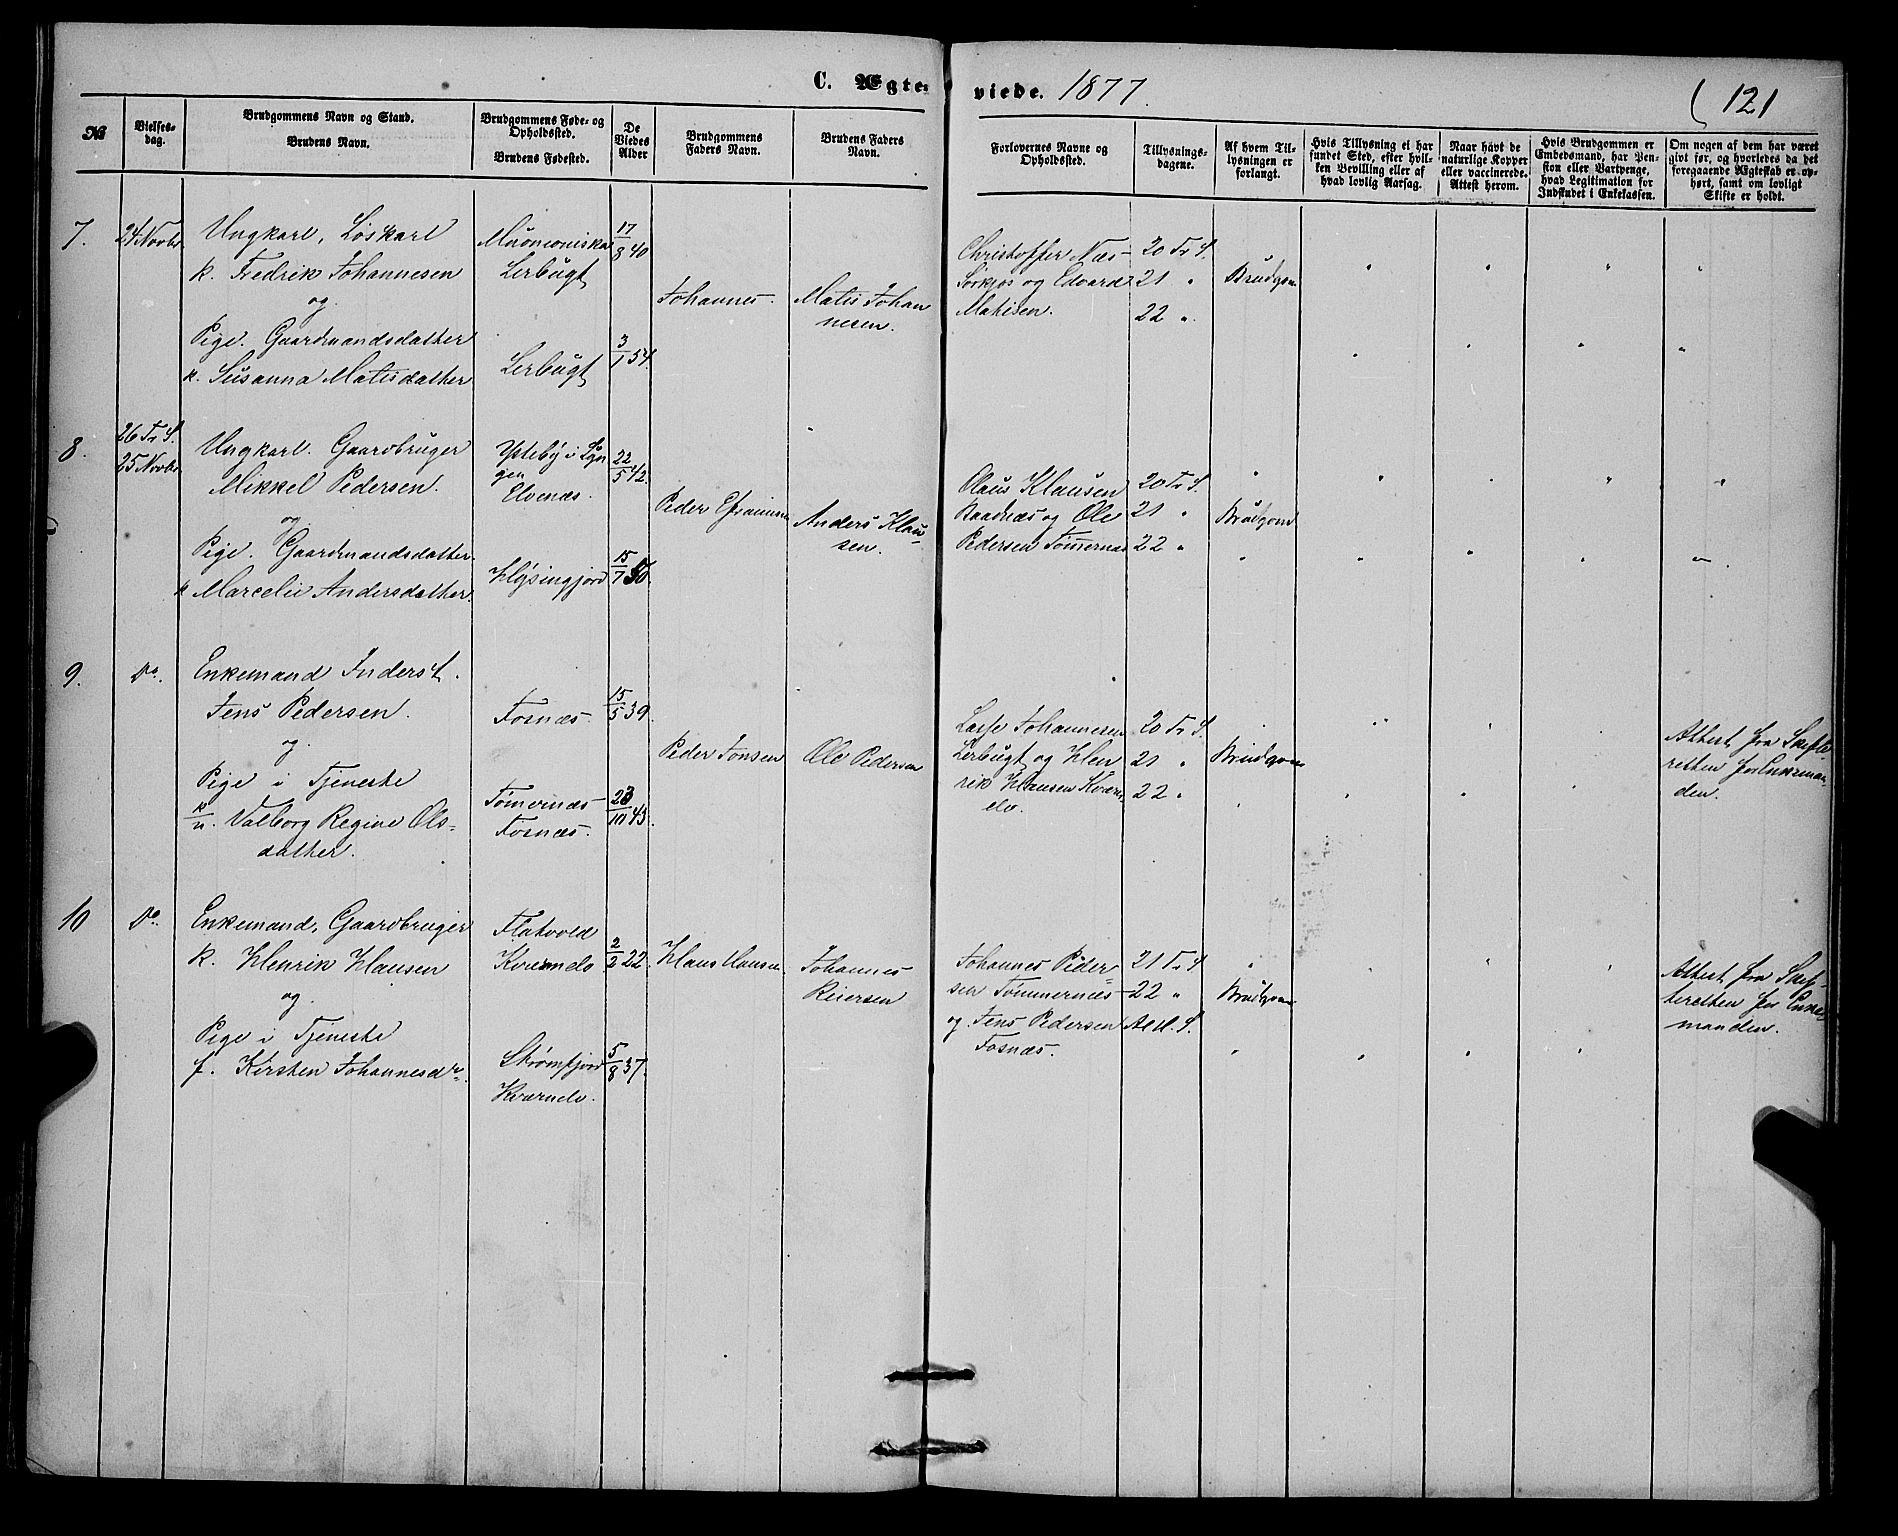 C. Ægteviede. 1877.
( 121
No
Vielsesdag.
Brudgommens Navn og Stand.
Brudens Navn.
Brudgommens Føde- og Opholdssted.
Brudens Fødested.
De Viedes Alder
Brudgommens Faders Navn.
Brudens Faders Navn.
Forlovernes Navne og Opholdssted.
Tillysningsdagene.
Af hvem Tillysningen er forlangt.
Hvis Tillysning ei har fundet Sted, efter hvilken Bevilling eller af hvad lovlig Aarsag.
Naar havt de naturlige Kopper eller vaccinerede. Attest herom.
Hvis Brudgommen er Embedsmand, har Pension eller Vartpenge, hvad Legitimation for Indskudet i Enkekassen.
Om nogen af dem har været givt før, og hvorledes da det foregaaende Ægteskab er ophørt, samt om lovligt Skifte er holdt.
7.
24 Novbr
Ungkarl, Løskarl
k. Fredrik Johannesen
og
Pige. Gaardmandsdatter
k. Susanna Matisdatter
Muonioniska
Lerbugt
Lerbugt
17/8 40
3/1 54.
Johannes.
Matis Johan
nesen.
Christoffer Næs-
Sørkjos og Edvard
Matisen.
20 Tr S.
21 "
22 "
Brudgom
8.
26 Tr S.
25 Novbr
Ungkarl. Gaardbruger
Mikkel Pedersen.
og
Pige. Gaardmandsdatter
k Marcelie Andersdatter.
Ytteby i Lyn
gen
Elvenæs.
22/5 42.
15/7 50.
Peder Efraimsen
Anders Klau-
sen.
Olaus Klausen
Baadnæs og Ole
Pedersen Tømernæs
20 Tr S.
21 "
22 "
Brudgom
9.
Do.
Enkemand Inderst.
Jens Pedersen.
og
Pige i Tjeneste
k/n. Valborg Regine Ols-
datter.
Fosnæs.
Tømernæs
Fosnæs.
15/5 39.
10 43.
Peder Jonsen
Ole Pedersen
Lasse Johannesen
Lerbugt og Hen
rik Hansen Kværn
elv.
20 Tr S.
21 "
22 "
Brudgom
Attest fra Skifte
retten for Enkeman
den.
10
Do.
Enkemand, Gaardbruger
k. Henrik Hansen
og
Pige i Tjeneste
f. Kirsten Johannesdr.
Flatvold
Kvernelv
Strømfjord
Kværnelv.
2/2 22.
5/8 37.
Hans Hansen
Johannes
Reiersen
Johannes Peder
sen Tømmernæs
og Jens Pedersen
Fosnæs.
21 Tr S
22 "
Al H. S.
Brudgom
Attest fra Skif-
teretten for Enke-
manden.